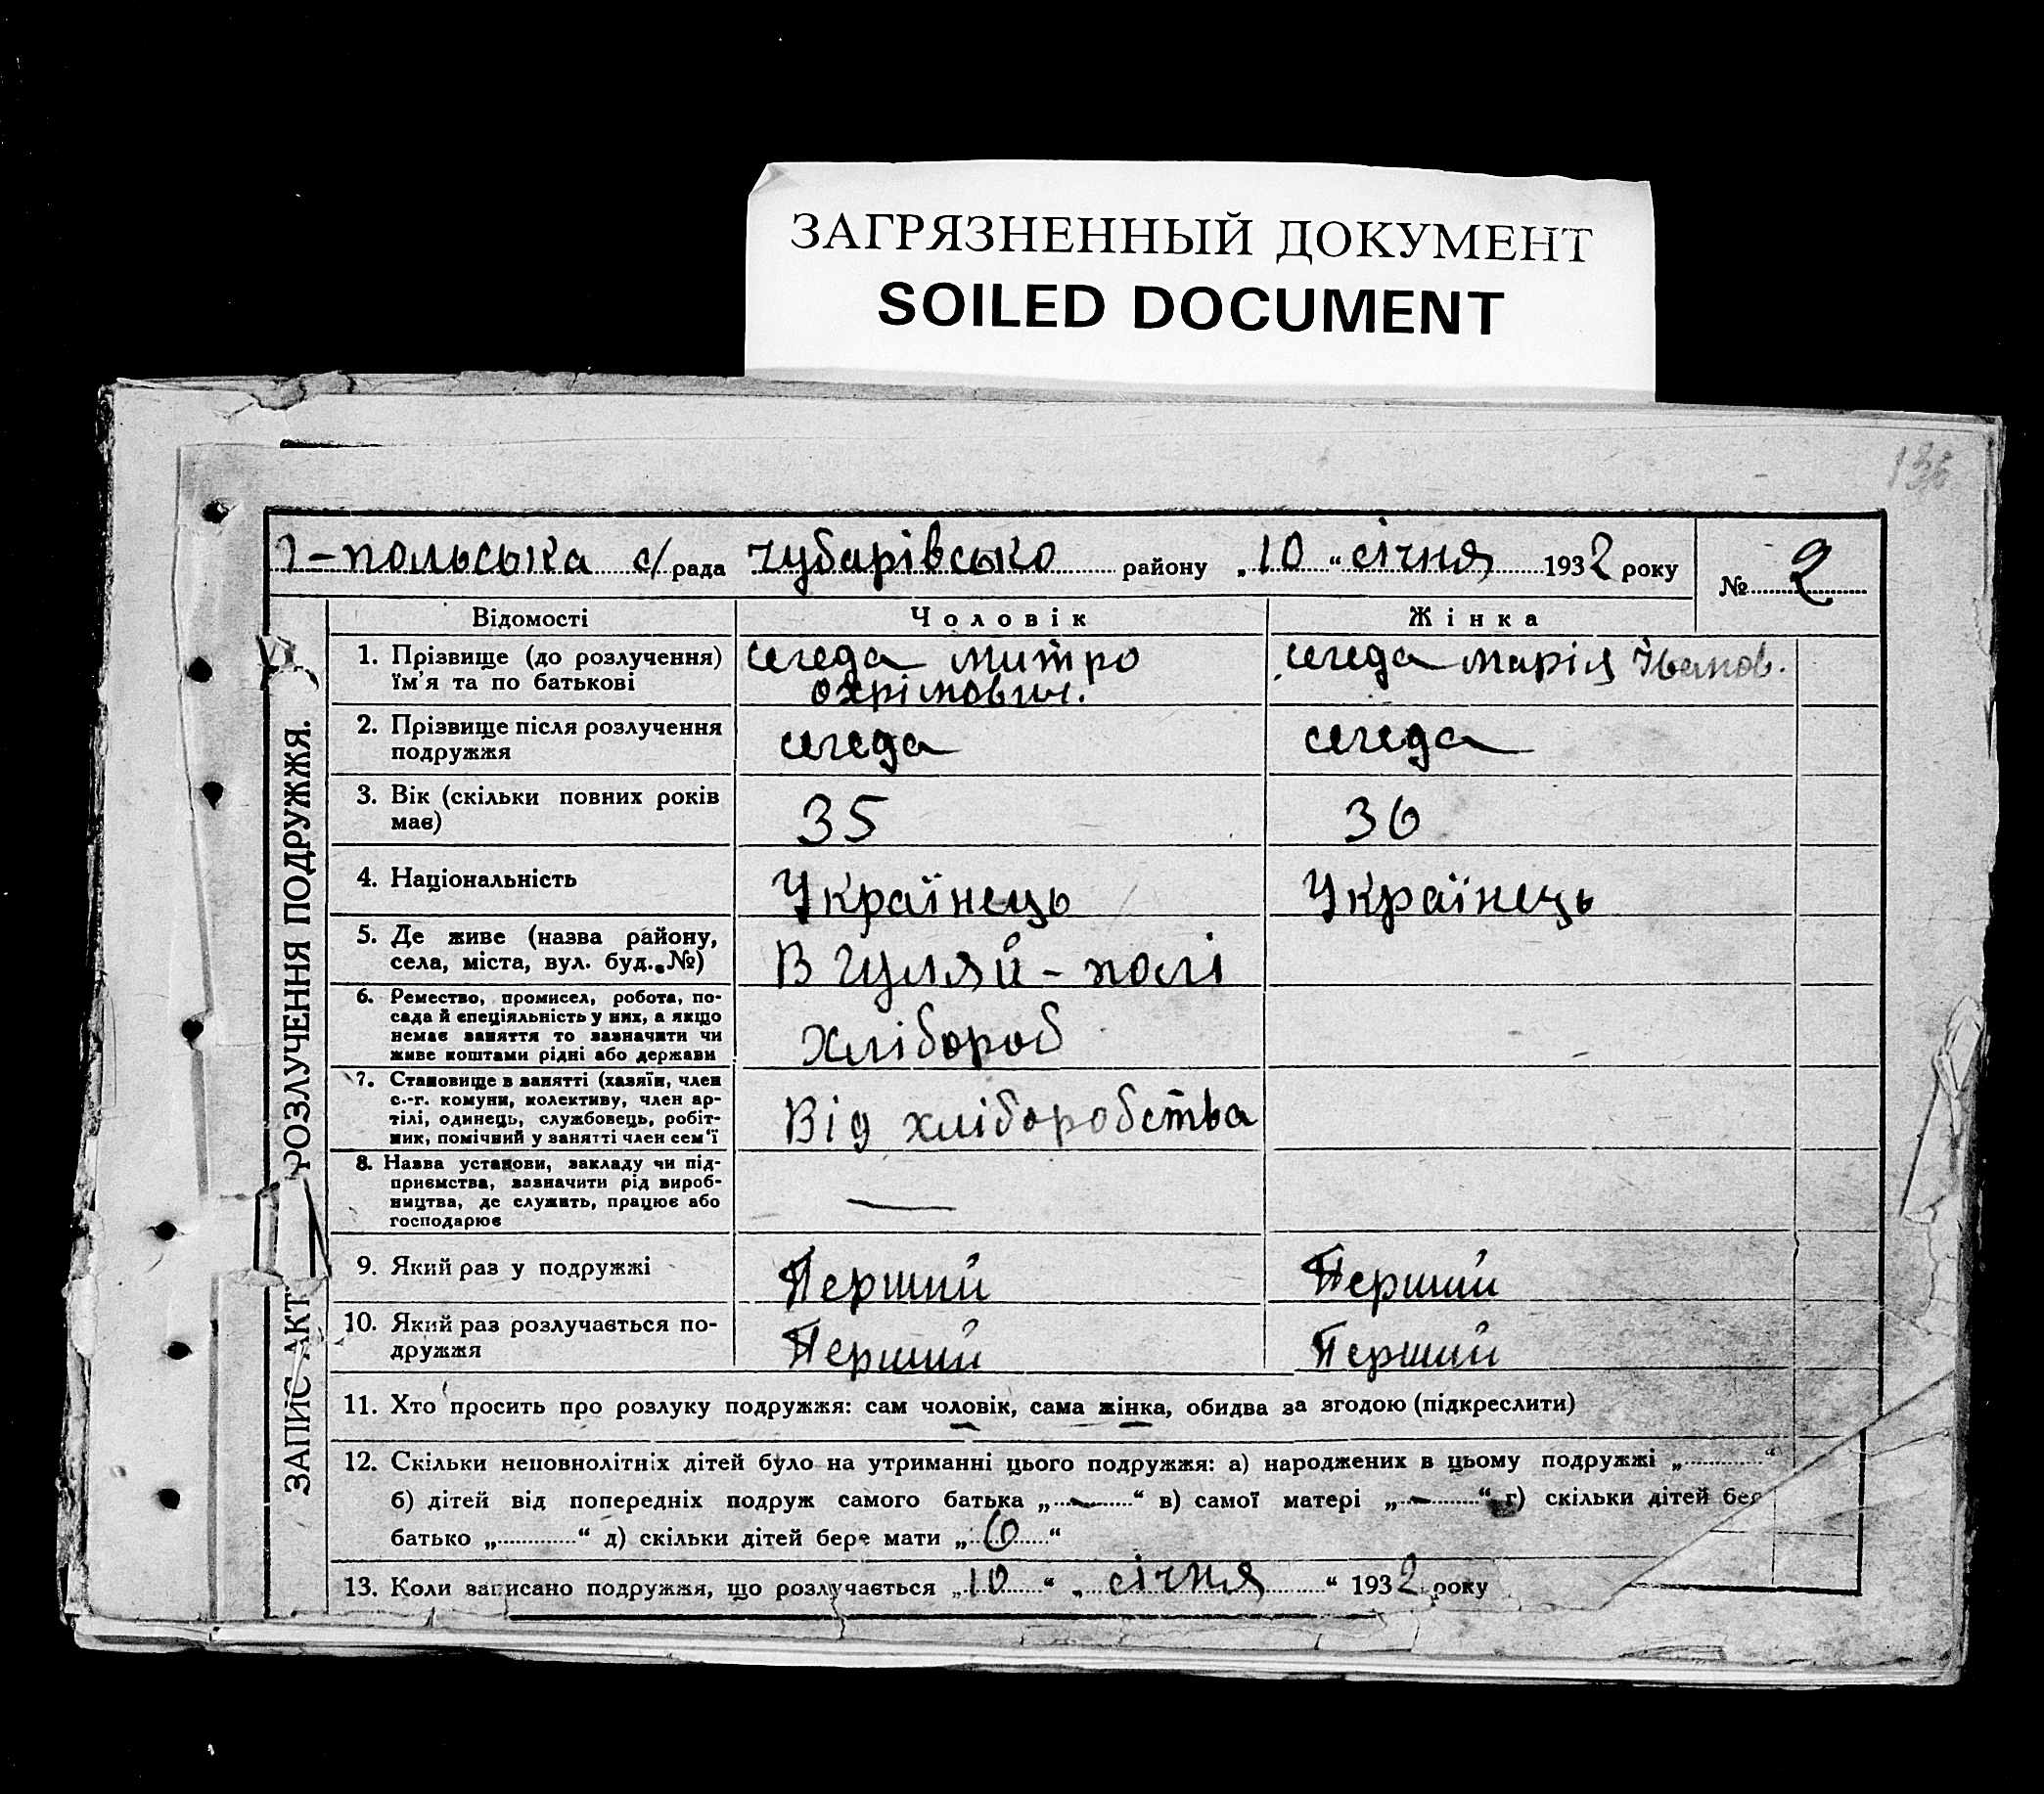 ЗАГРЯЗНЕННЫЙ ДОКУМЕНТ
SOILED DOCUMENT
136
г-польська с/рада чубарівсько району „10“ січня 1932 року № 2
ЗАПИС АКТ РОЗЛУЧЕННЯ ПОДРУЖЖЯ.
Відомості Чоловік Жінка
1. Прізвище (до розлучення) сегеда митро сегеда марія Іванов.
їм'я та по батькові охрімович.
2. Прізвище після розлучення сегеда сегеда
подружжя
3. Вік (скільки повних років 35 36
має)
4. Національність Українець Українець
5. Де живе (назва району, В гуляй-полі
села, міста, вул. буд. №)
6. Ремество, промисел, робота, по-
сада й спеціяльність у них, а якщо Хлібороб
немає заняття то зазначити чи
живе коштами рідні або держави
7. Становище в занятті (хазяїн, член
с.-г. комуни, колективу, член ар- Від хліборобства
тілі, одинець, службовець, робіт-
ник, помічний у занятті член сем'ї
8. Назва установи, закладу чи під-
приємства, зазначити рід вироб-
ництва, де служить, працює або —
господарює
9. Який раз у подружжі Перший Перший
10. Який раз розлучається по- Перший Перший
дружжя
11. Хто просить про розлуку подружжя: сам чоловік, сама жінка, обидва за згодою (підкреслити)
12. Скільки неповнолітніх дітей було на утриманні цього подружжя: а) народжених в цьому подружжі „ “
б) дітей від попередніх подруж самого батька „—“ в) самої матері „—“ г) скільки дітей бер
батько „ “ д) скільки дітей бере мати „6“
13. Коли записано подружжя, що розлучається „10“ „січня“ 1932 року